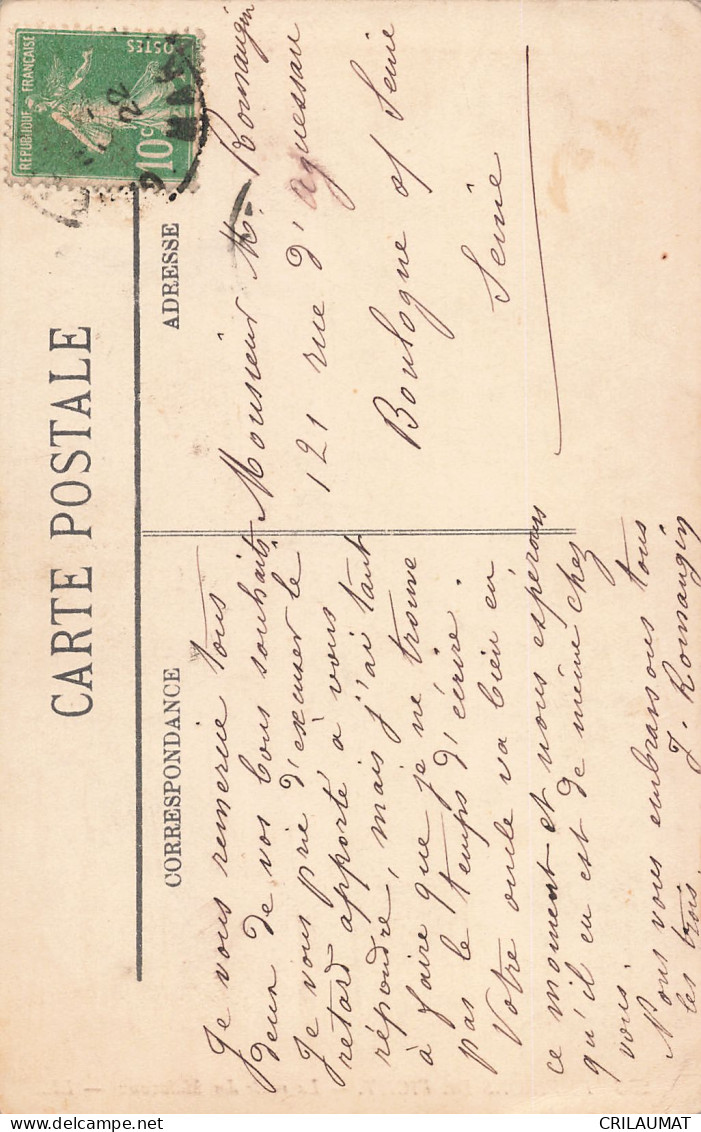 CARTE POSTALE
CORRESPONDANCE
ADRESSE
REPUBLIQUE FRANÇAISE
POSTES
10c
22
Je vous remercie tous
deux de vos bons souhaits
Je vous prie d'excuser le
retard apporté à vous
répondre, mais j'ai tant
à faire que je ne trouve
pas le temps d'écrire.
Votre oncle va bien en
ce moment et nous espérons
qu'il en est de même chez
vous.
Nous vous embrassons tous
les trois.
J. Romangin
Monsieur M. Romangin
121 rue d'Aguessau
Boulogne s/ Seine
Seine
CRILAUMAT